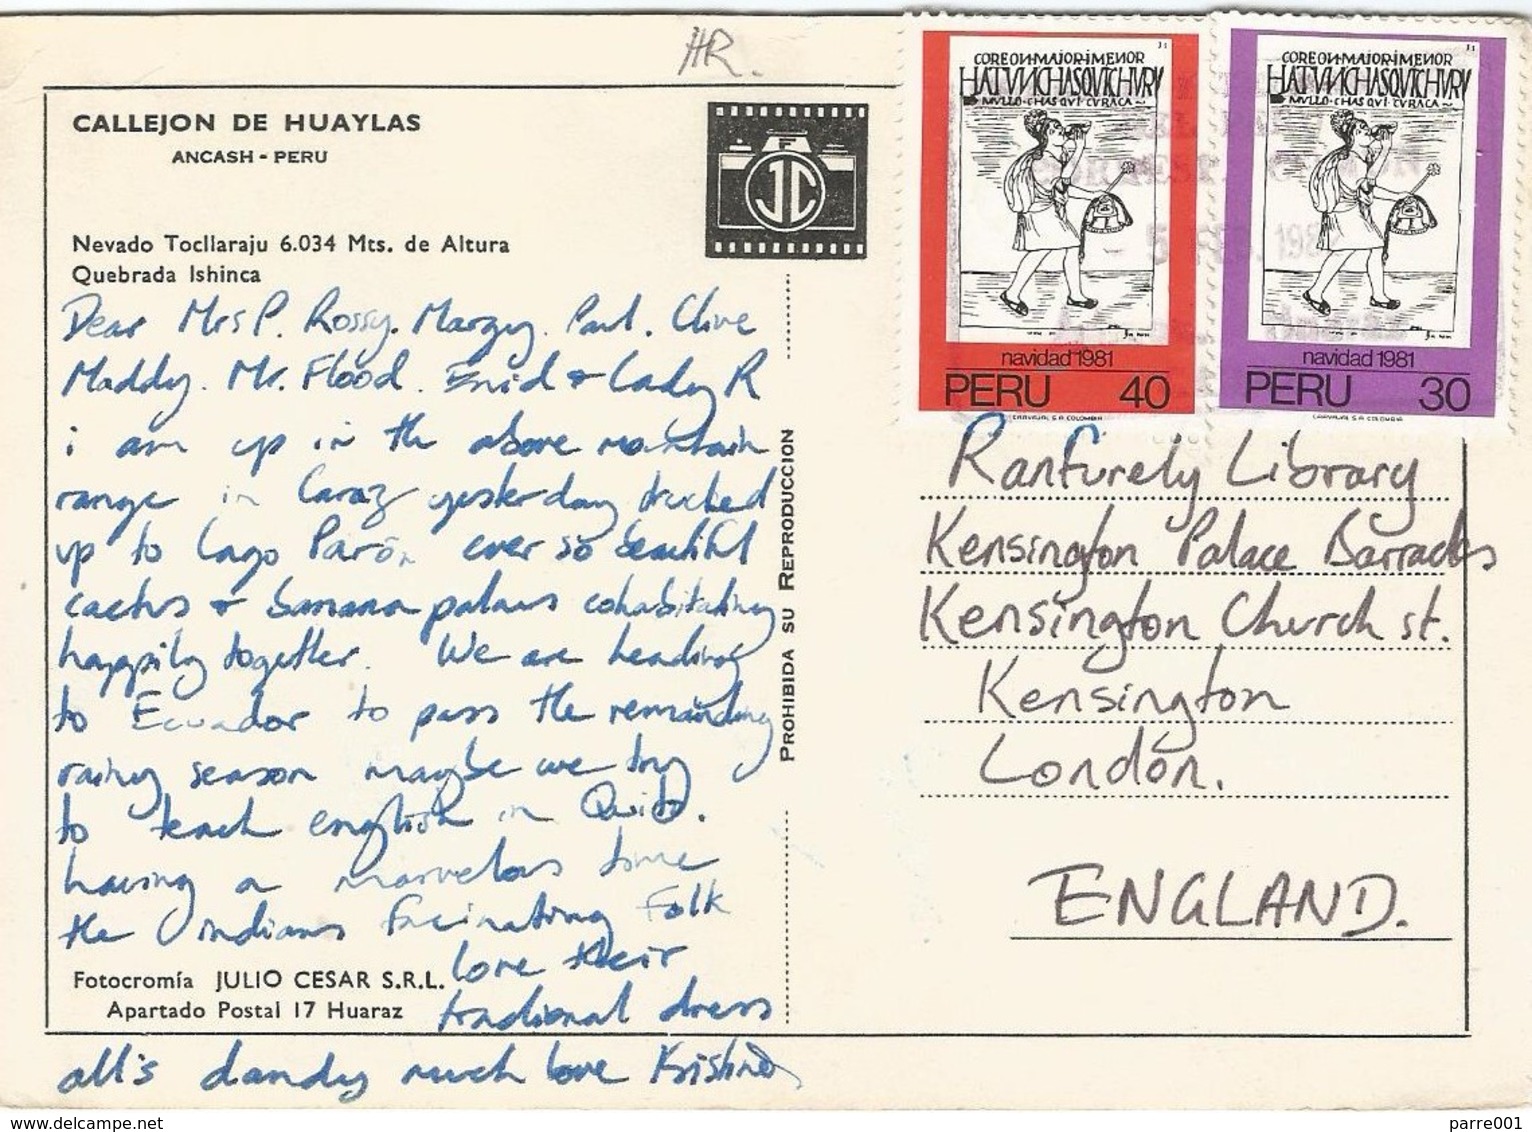 HR.
CALLEJON DE HUAYLAS
ANCASH - PERU
Nevado Tocllaraju 6.034 Mts. de Altura
Quebrada Ishinca
F
JC
Dear Mrs P. Rossy. Margy. Paul. Clive
Maddy. Mr. Flood. Enid & Lady R
i am up in the above mountain
range in Caraz yesterday trucked
up to Lago Parón ever so beautiful
cactus & banana palms cohabitating
happily together. We are heading
to Ecuador to pass the remainding
rainy season maybe we try
to teach english in Quito.
having a marvelous time
the indians facinating Folk
love their
tradional dress
all's dandy much love
Fotocromía JULIO CESAR S.R.L.
Apartado Postal 17 Huaraz
PROHIBIDA SU REPRODUCCION
COREON·MAIOR·IMENOR
HATVNCHASQVICHVRV
MVLLO·CHASQVI·CVRACA
navidad 1981
PERU 40
CARVAJAL S.A. COLOMBIA
COREON·MAIOR·IMENOR
HATVNCHASQVICHVRV
MVLLO·CHASQVI·CVRACA
navidad 1981
PERU 30
CARVAJAL S.A. COLOMBIA
- 5 FEB. 198
Ranfurely Library
Kensington Palace Barracks
Kensington Church st.
Kensington
London.
ENGLAND.
www.delcampe.net
parre001